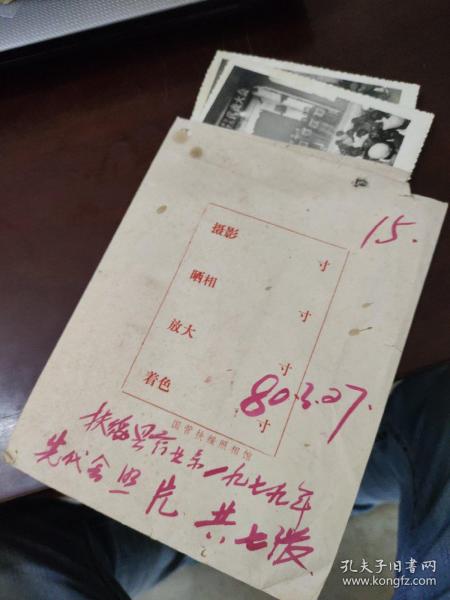 15.
摄影 寸
晒相 寸
放大 寸
着色 寸
80.3.27.
国营扶绥照相馆
扶绥县商业系一九七九年
先代会照片 共七张
孔夫子旧书网
www.kongfz.com